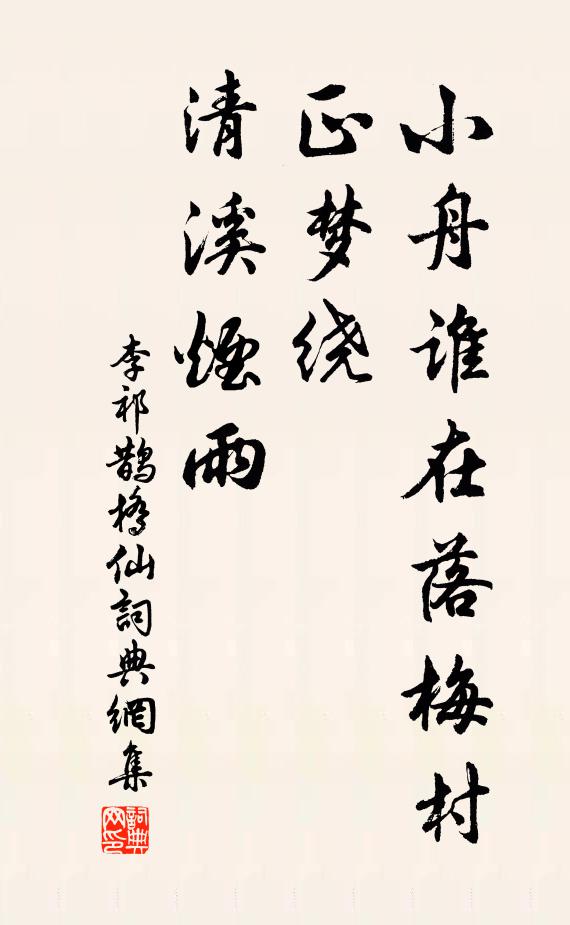 小舟谁在落梅村
正梦绕
清溪煙雨
李祁鹊橋仙詞典網集
詞典網印